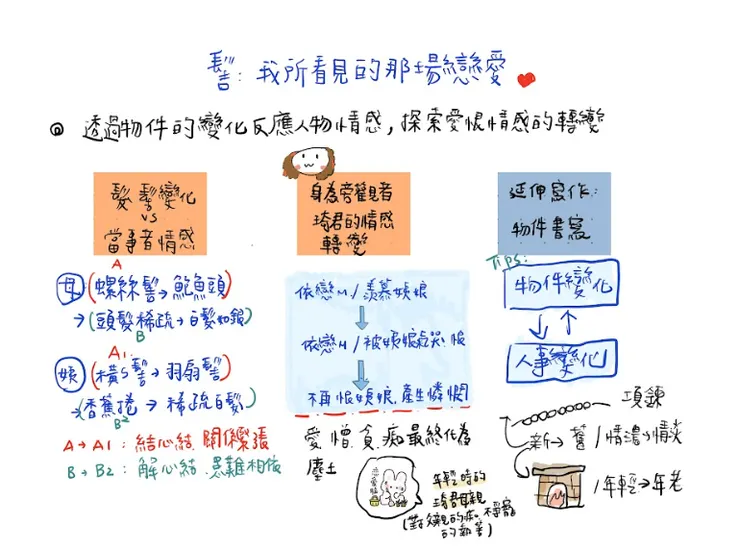 髻：我所看見的那場戀愛
◎ 透過物件的變化反應人物情感，探索愛恨情感的轉變
髮 髻變化
vs
當事者情感
A
母 (螺絲髻→鮑魚頭)
→(頭髮稀疏→白髮如銀)
B
A1
娘 (橫S髻→羽扇髻)
→(香蕉捲→稀疏白髮)
B2
A→A1：結心結、關係緊張
B→B2：解心結、患難相依
身為旁觀者
琦君的情感
轉變
依戀M/羨慕姨娘
依戀M/被姨娘處哭 恨
不再恨姨娘，產生憐憫
愛、憎、貪、痴最終化為
塵土
戀愛腦
年輕時的
琦君母親
(對父親的痴、
的執著)
延伸寫作：
物件書寫
Tips：
物件變化
人事變化
項鍊
新→舊/情濃→情淡
/年輕→年老